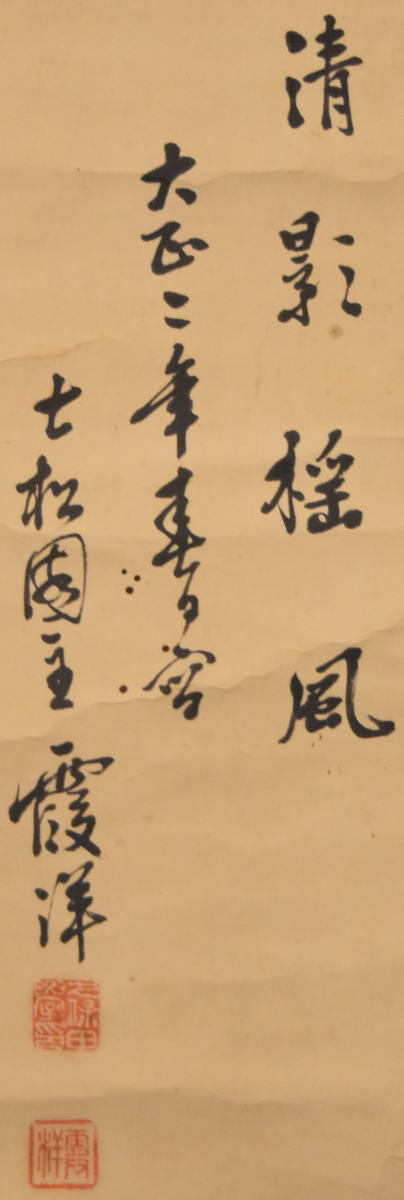 清影搖風
大正二年春日寫
七松園主霞洋
霞洋